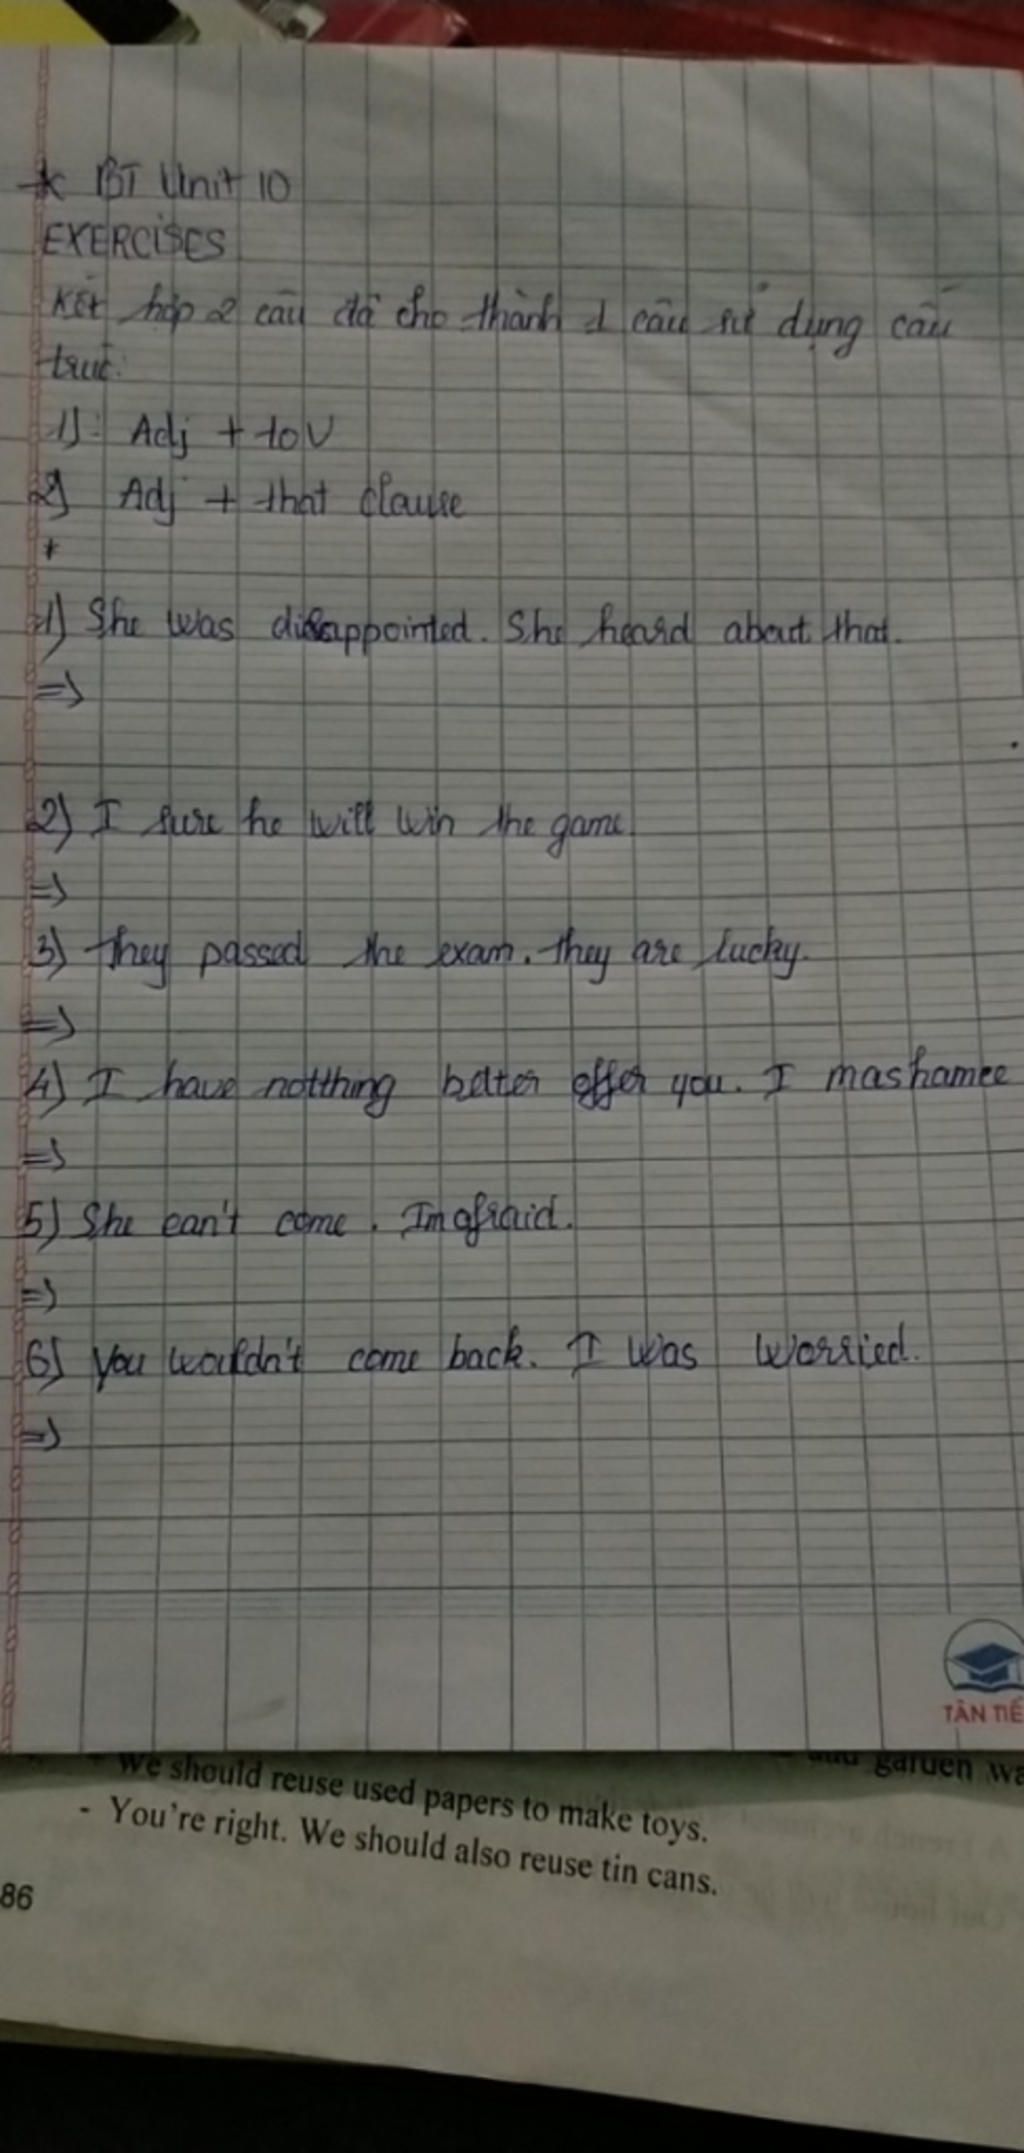 * BT Unit 10
EXERCISES
Kết hợp 2 câu đã cho thành 1 câu sử dụng cấu
trúc:
1): Adj + to V
2) Adj + that clause
*
1) She was disappointed. She heard about that.
=>
2) I sure he will win the game.
=>
3) They passed the exam. They are lucky.
=>
4) I have notthing better offer you. I mashamee
=>
5) She can't come. Im afraid.
=>
6) You wouldn't come back. I was worried.
=>
TÂN TIẾ
and garden wa
- We should reuse used papers to make toys.
- You're right. We should also reuse tin cans.
86